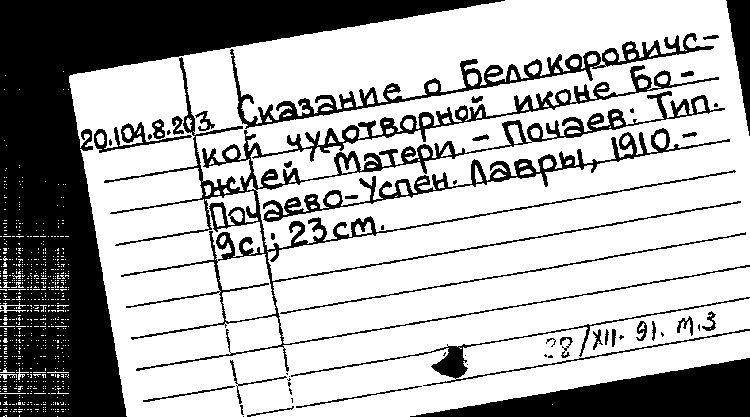 20.104.8.203. Сказание о Белокоровичс-
кой чудотворной иконе Бо-
жией Матери. – Почаев: Тип.
Почаево-Успен. Лавры, 1910.–
9с.; 23 cm.
28/XII. 91. м.з